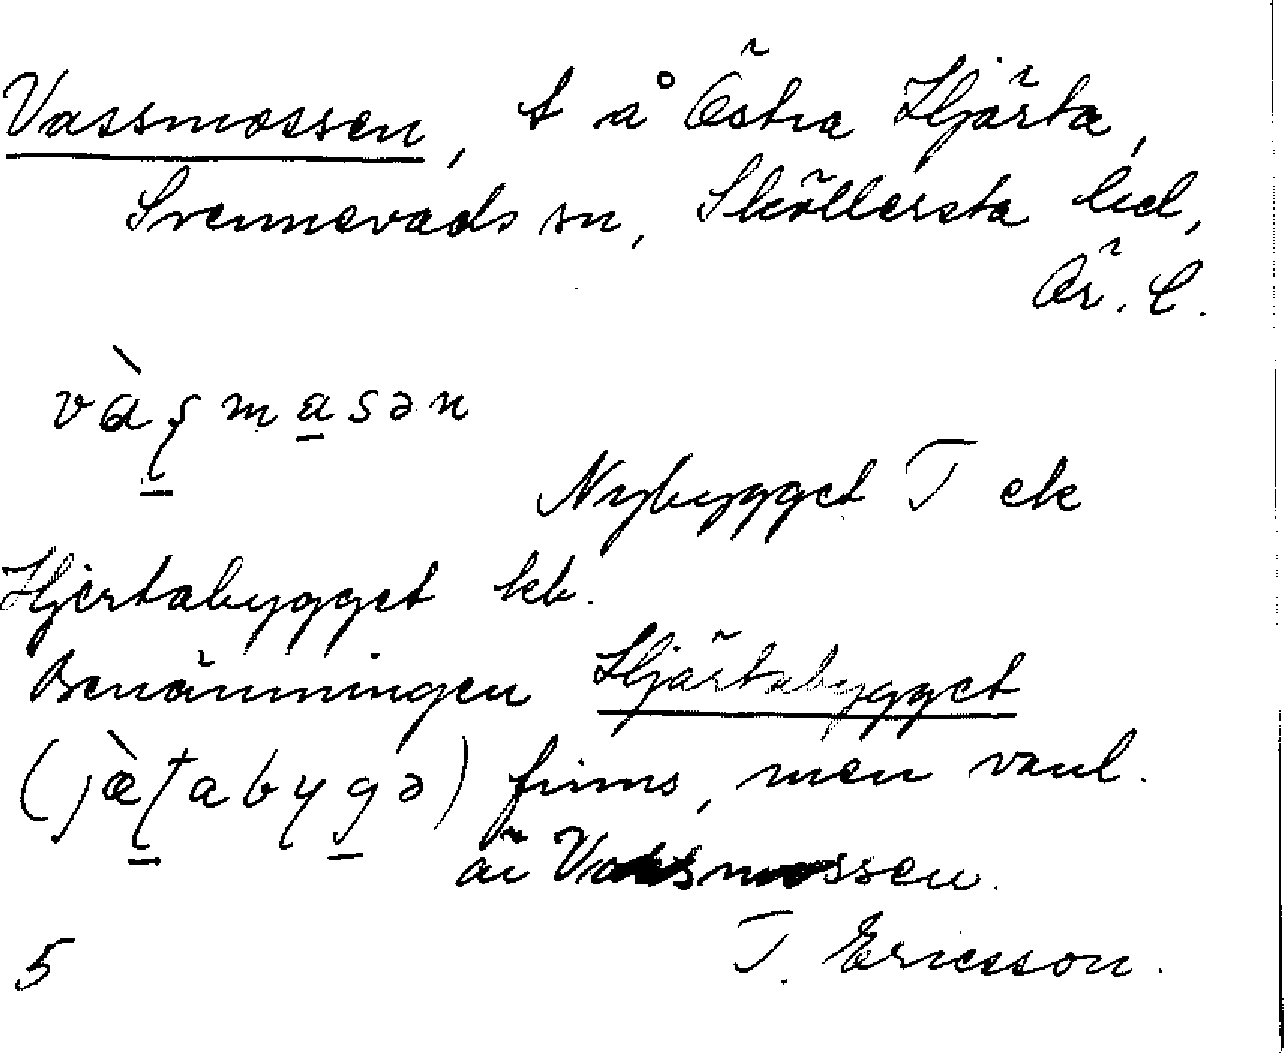 Vassmossen, t å Östra Hjärta,
Svennevads sn, Sköllersta hd,
Ör. l.
vàʂmasən
Nybygget T ek
Hjertabygget kb.
Benämningen Hjärtabygget
(jæ̀ʈabygə) finns, men vanl.
är Vassmossen.
5 T. Ericsson.